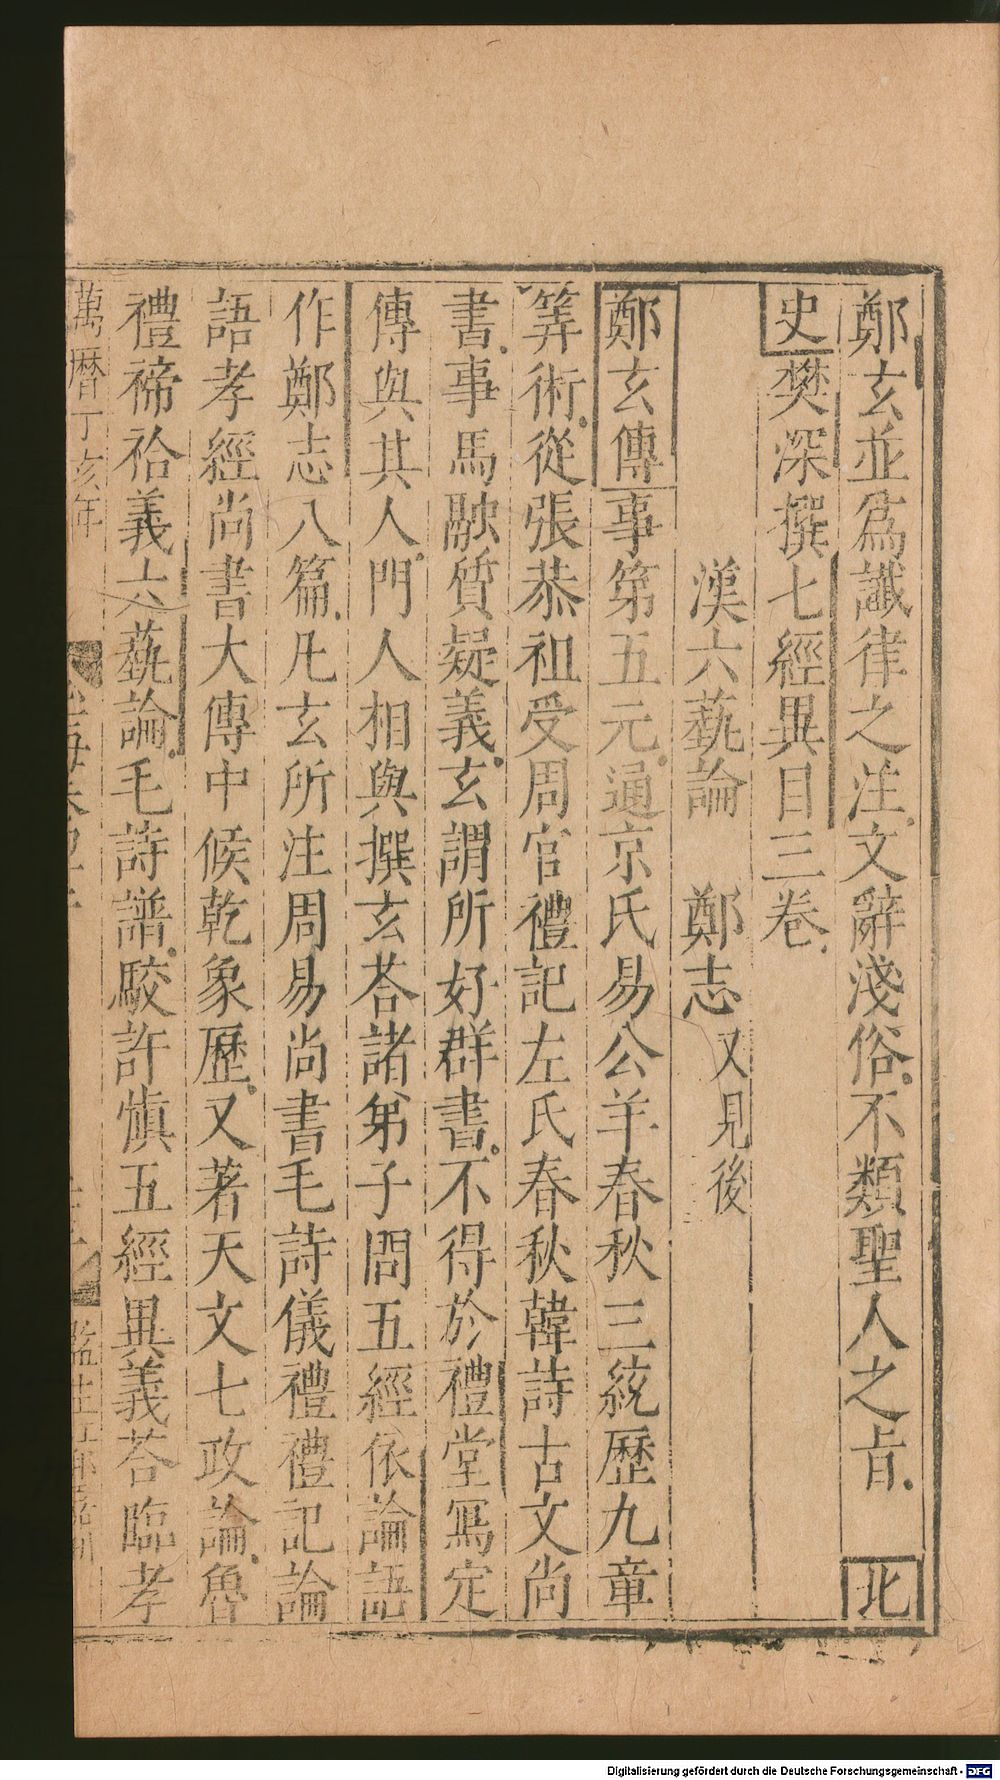 鄭玄並爲讖律之注文辭淺俗不類聖人之旨 北
史樊深撰七經異目三卷
漢六蓺論 鄭志 又見後
鄭玄傳事第五元通京氏易公羊春秋三統歷九章
筭術從張恭祖受周官禮記左氏春秋韓詩古文尚
書事馬融質疑義玄謂所好群書不得於禮堂寫定
傳與其人門人相與撰玄荅諸弟子問五經依論語
作鄭志八篇凡玄所注周易尚書毛詩儀禮禮記論
語孝經尚書大傳中候乾象歷又著天文七政論魯
禮禘祫義六蓺論毛詩譜駮許慎五經異義荅臨孝
萬曆丁亥年
Digitalisierung gefördert durch die Deutsche Forschungsgemeinschaft - DFG